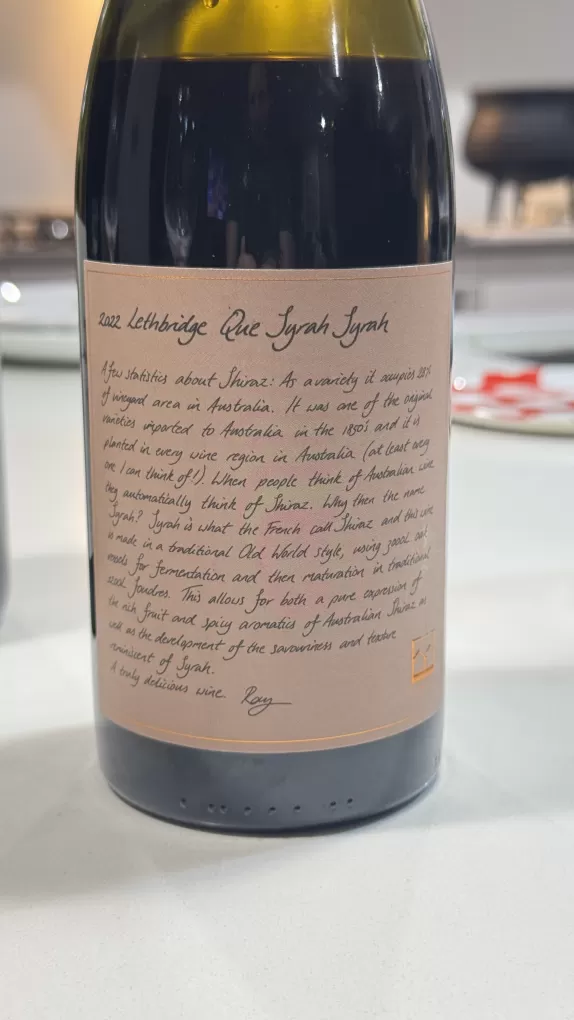 2022 Lethbridge Que Syrah Syrah
A few statistics about Shiraz: As a variety it occupies 28%
of vineyard area in Australia. It was one of the original
varieties imported to Australia in the 1850's and it is
planted in every wine region in Australia (at least every
one I can think of!). When people think of Australian wine
they automatically think of Shiraz. Why then the name
Syrah? Syrah is what the French call Shiraz and this wine
is made in a traditional Old World style, using 3000L oak
vessels for fermentation and then maturation in traditional
foudres. This allows for both a pure expression of
the rich fruit and spicy aromatics of Australian Shiraz as
well as the development of the savouriness and texture
reminiscent of Syrah.
A truly delicious wine. Ray